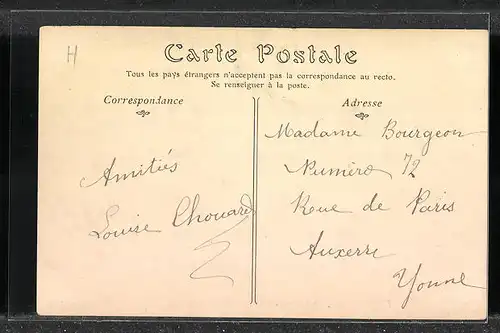 H
Carte Postale
Tous les pays étrangers n'acceptent pas la correspondance au recto.
Se renseigner à la poste.
Correspondance
Adresse
Amitiés
Louise Chouard
Madame Bourgeon
Numéro 72
Rue de Paris
Auxerre
Yonne